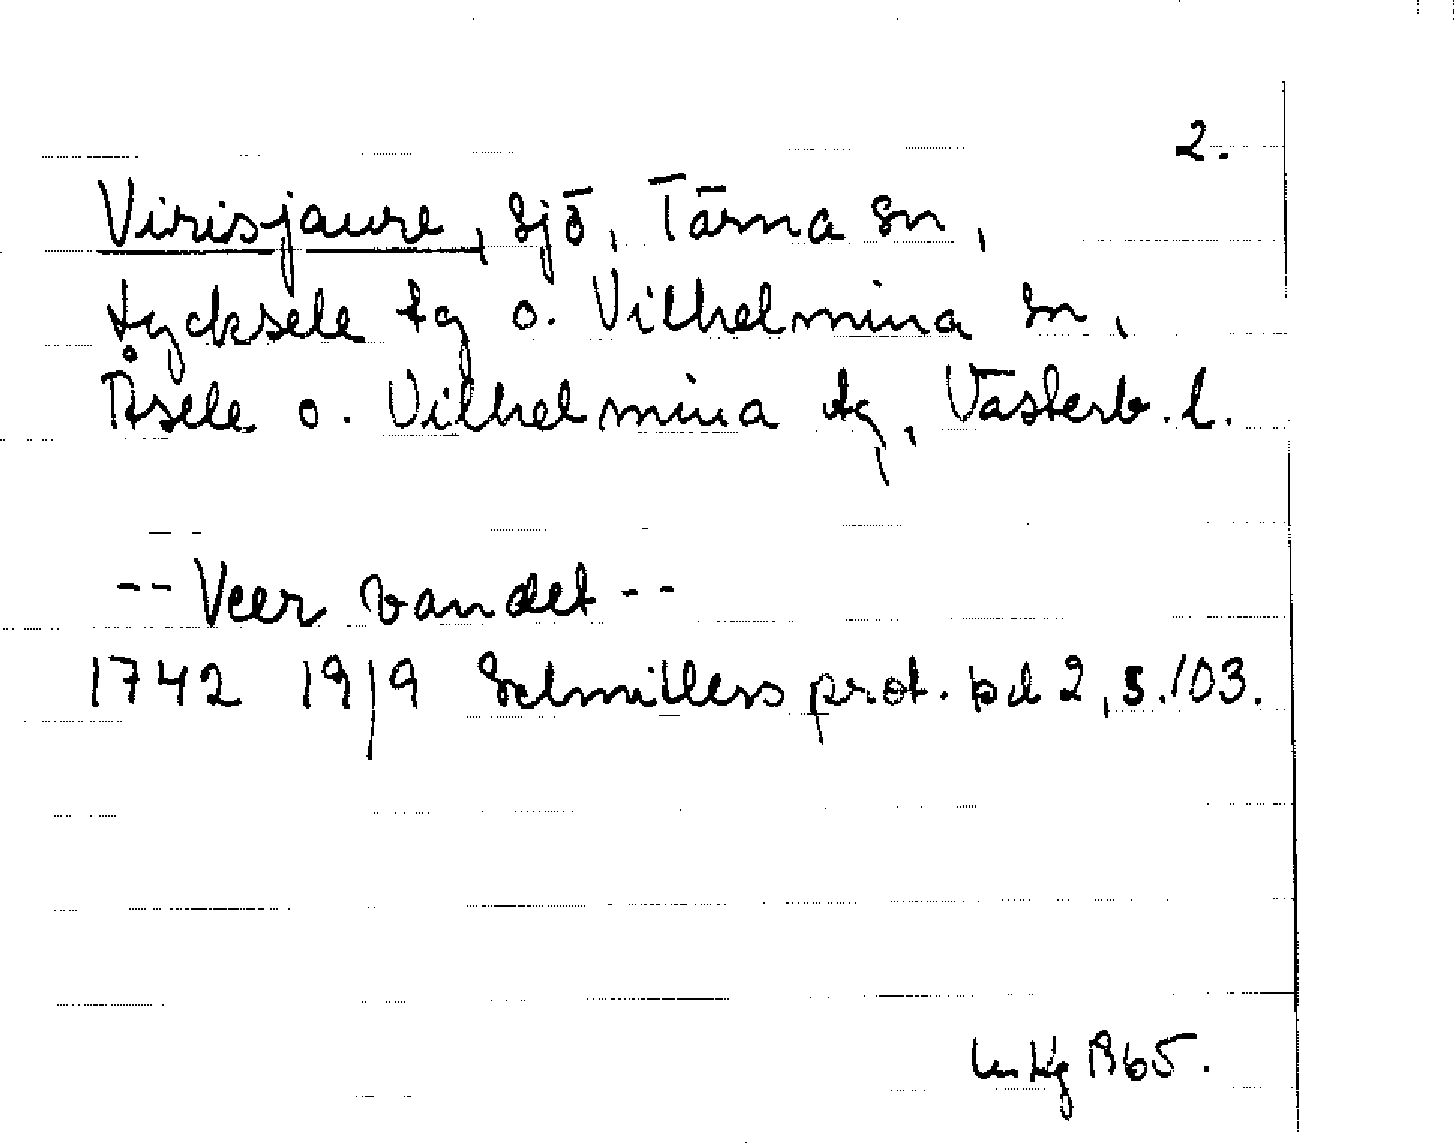 2.
Virisjaure, sjö, Tärna sn,
Lycksele tg o. Vilhelmina sn,
Åsele o. Vilhelmina tg, Västerb. l.
-- Veer vandet --
1742 19/9 Schnitlers prot. bd 2, s. 103.
1965.